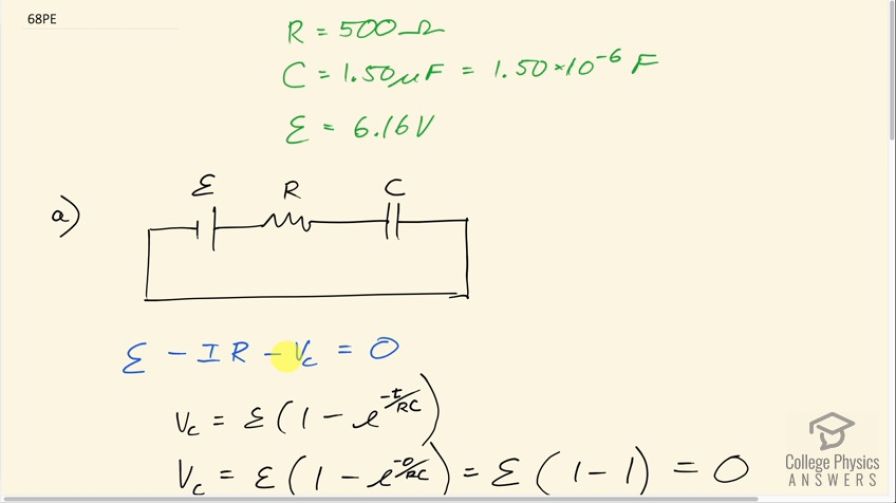 68PE
R = 500 Ω
C = 1.50 μF = 1.50 × 10⁻⁶ F
ℰ = 6.16 V
ℰ R C
a)
ℰ - IR - V_c = 0
V_c = ℰ(1 - e^(-t/RC))
V_c = ℰ(1 - e^(-0/RC)) = ℰ(1 - 1) = 0
College Physics
ANSWERS